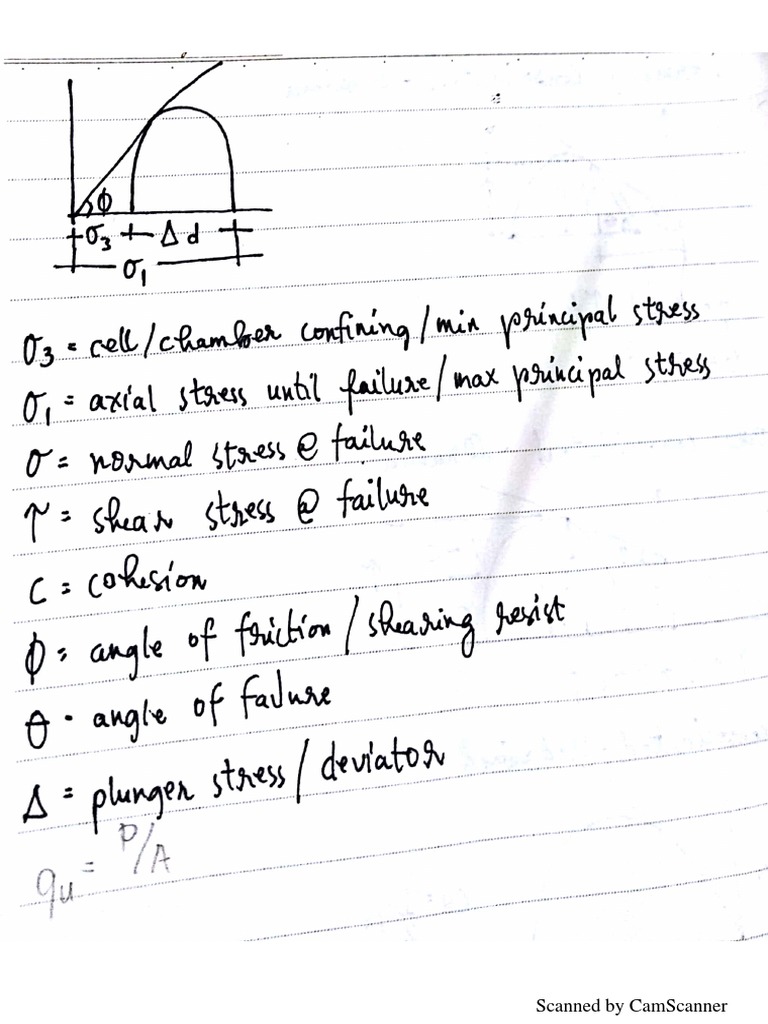 ϕ
σ3 Δ d
σ1
σ3 = cell/chamber confining/min principal stress
σ1 = axial stress until failure/max principal stress
σ = normal stress @ failure
τ = shear stress @ failure
C = cohesion
ϕ = angle of friction / shearing resist
θ = angle of failure
Δ = plunger stress / deviator
qu = P/A
Scanned by CamScanner